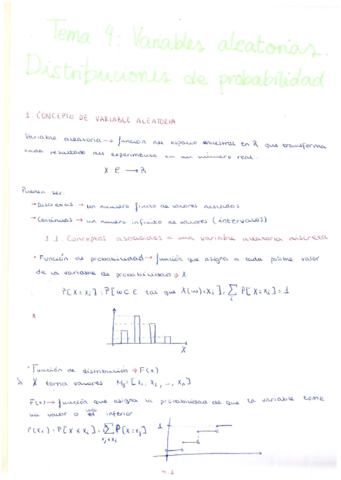 Tema 4: Variables aleatorias.
Distribuciones de probabilidad
1. CONCEPTO DE VARIABLE ALEATORIA
Variable aleatoria → función del espacio muestral en R que transforma
cada resultado del experimento en un número real.
X E → R
Pueden ser:
→ Discretas → un número finito de valores aislados
→ Continuas → un número infinito de valores (intervalos)
1.1. Conceptos asociados a una variable aleatoria discreta
· Función de probabilidad → función que asigna a cada posible valor
de la variable de probabilidad → X
P[X=xi] = P[ω∈E tal que X(ω)=xi], ∑i P[X=xi]=1
X
· Función de distribución → F(x)
X toma valores {x1, x2, ..., xn}
F(x) → función que asigna la probabilidad de que la variable tome
un valor o inferior
F(xi) = P[X≤xi] = ∑xj≤xi P[X=xj]
1